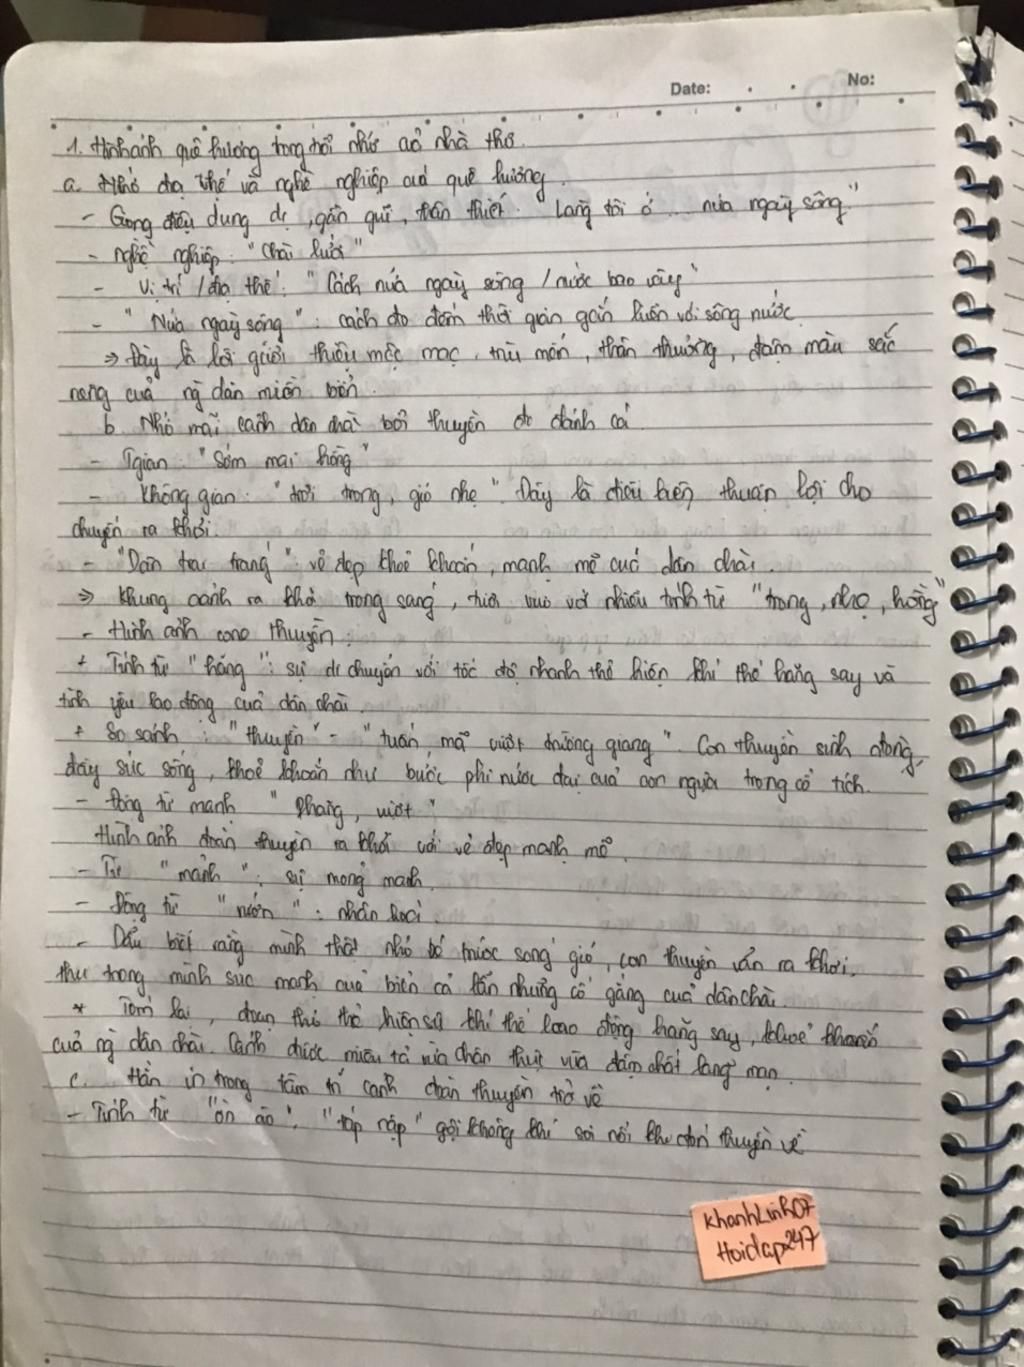 Date: No:
1. Hình ảnh quê hương trong nỗi nhớ củả nhà thơ.
a. Nhớ địa thế và nghề nghiệp của quê hương.
- Giọng điệu dung dị, gần gũi, thân thiết. Làng tôi ở ... nửa ngày sông."
- Nghề nghiệp: "Chài lưới"
- Vị trí / địa thế: "Cách nửa ngày sông / nước bao vây"
- "Nửa ngày sông": cách đo đếm thời gian gắn luôn với sông nước.
⇒ Đây là lời giới thiệu mộc mạc, trìu mến, thân thương, đậm màu sắc
riêng của ng dân miền biển.
b. Nhớ mãi cảnh dân chài bơi thuyền đi đánh cá.
- Tgian: "Sớm mai hồng"
- Không gian: "trời trong, gió nhẹ". Đây là điều kiện thuận lợi cho
chuyến ra khơi.
- "Dân trai tráng": vẻ đẹp khoẻ khoắn, mạnh mẽ của dân chài.
⇒ Khung cảnh ra khơi trong sáng, tươi vui với nhiều tính từ "trong, nhẹ, hồng"
- Hình ảnh con thuyền:
+ Tính từ "hăng": sự di chuyển với tốc độ nhanh thể hiện khí thế hăng say và
tình yêu lao động của dân chài.
+ So sánh: "thuyền" - "tuấn mã vượt trường giang". Con thuyền sinh động,
đầy sức sống, khoẻ khoắn như bước phi nước đại của con ngựa trong cổ tích.
- Động từ mạnh "Phăng, vượt"
Hình ảnh đoàn thuyền ra khơi với vẻ đẹp mạnh mẽ.
- Từ "mảnh": sự mỏng manh.
- Động từ "rướn": nhân hoá.
- Dẫu biết rằng mình thật nhỏ bé trước sóng gió, con thuyền vẫn ra khơi.
thu trong mình sức mạnh của biển cả lẫn những cố gắng của dân chài.
* Tóm lại, đoạn thơ thể hiện sự khí thế lao động hăng say, khoẻ khoắn
của ng dân chài. Cảnh được miêu tả vừa chân thực vừa đậm chất lãng mạn.
c. Hằn in trong tâm trí cảnh đoàn thuyền trở về
- Tính từ "ồn ào", "tấp nập" gợi không khí sôi nổi khi đón thuyền về
KhanhLinh07
Hoidap247